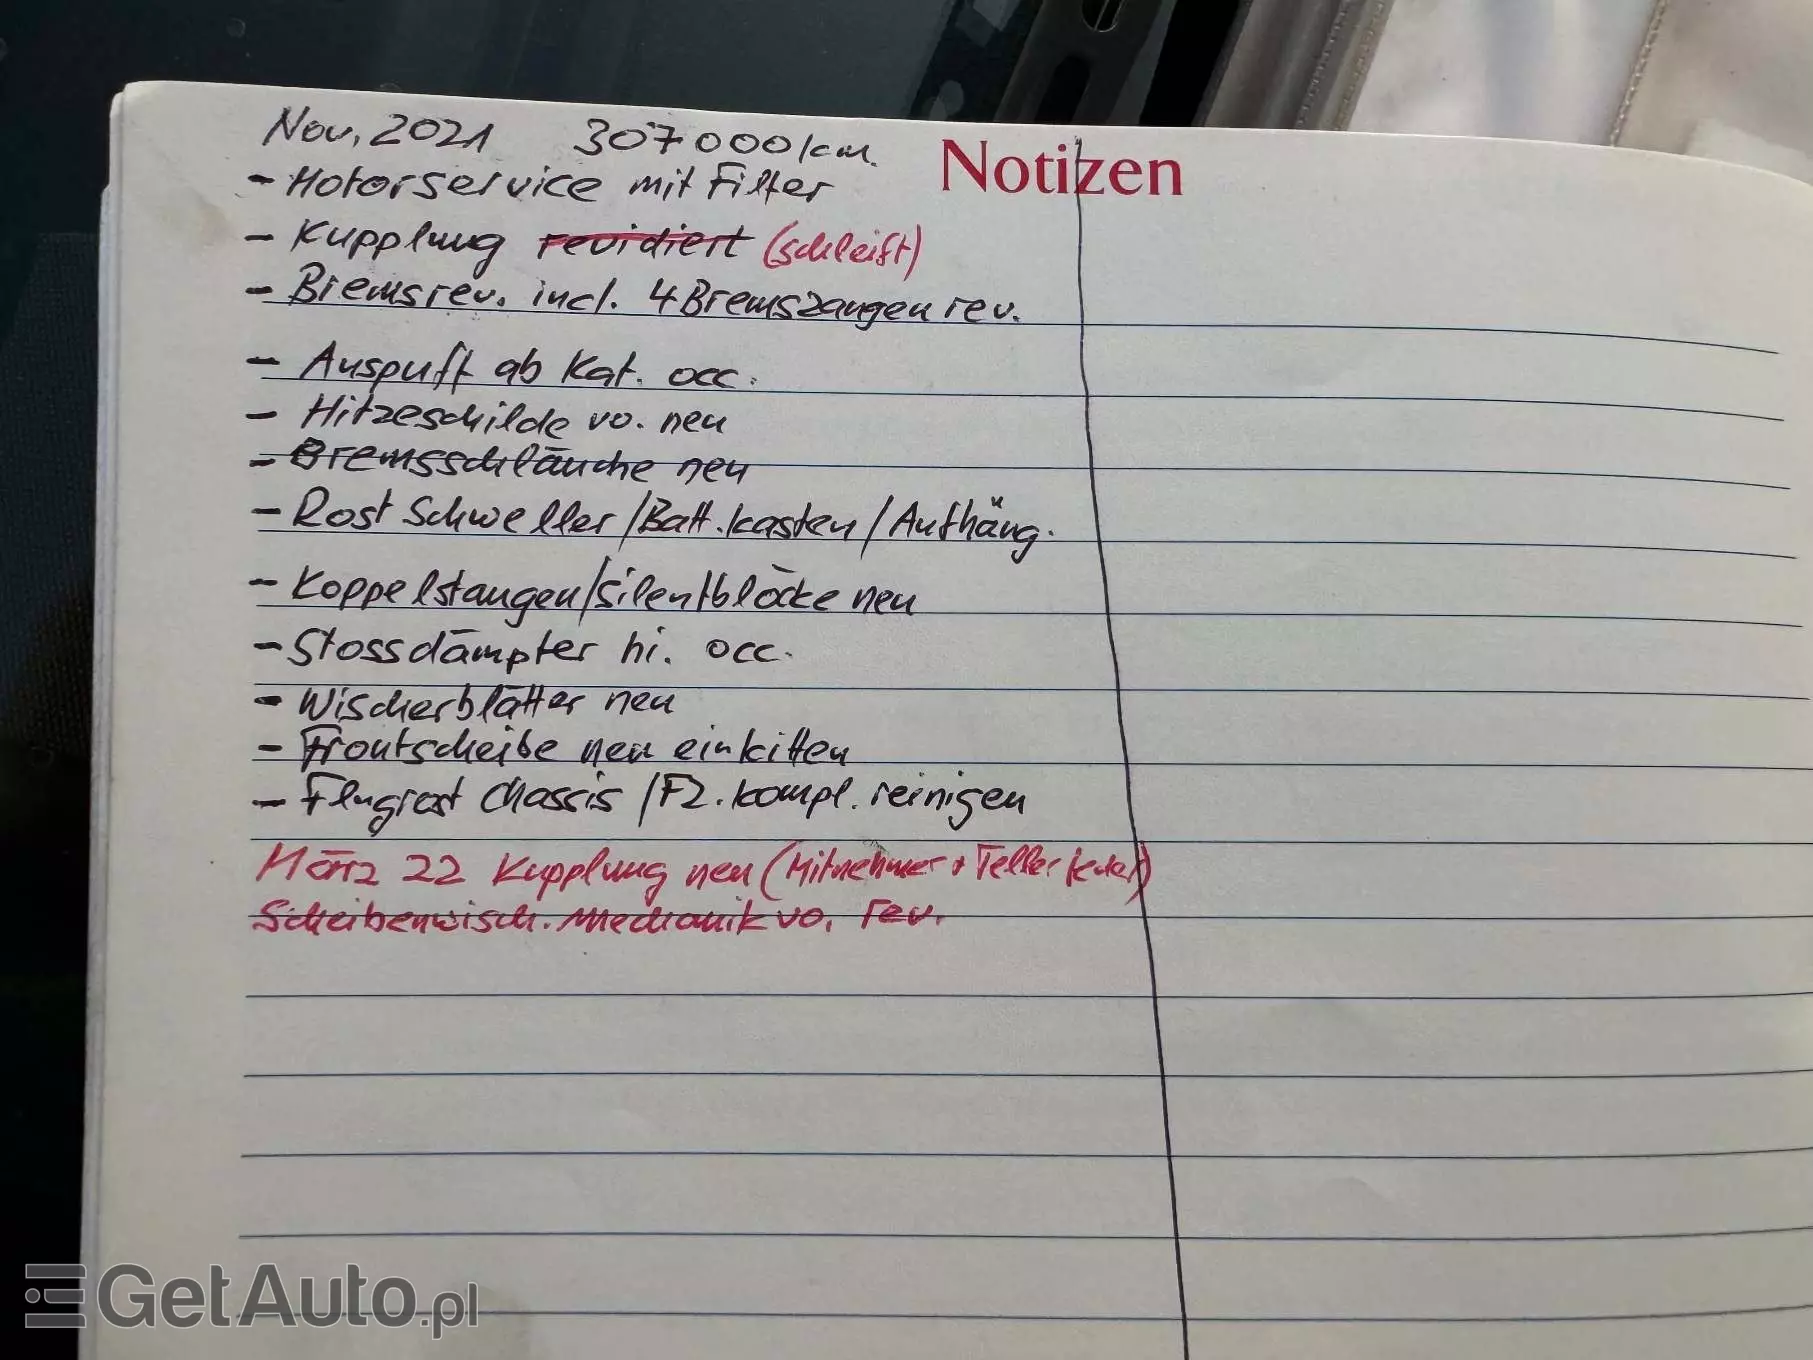 Notizen
Nov. 2021 307000 km.
- Motorservice mit Filter
- Kupplung revidiert (schleift)
- Bremsrev. incl. 4 Bremszangen rev.
- Auspuff ab Kat. occ.
- Hitzeschilde vo. neu
- Bremsschläuche neu
- Rost Schweller/Batt.kasten/Aufhäng.
- Koppelstangen/Silentblöcke neu
- Stossdämpfer hi. occ.
- Wischerblätter neu
- Frontscheibe neu einkitten
- Flugrost Chassis/Fz. kompl. reinigen
März 22 Kupplung neu (Mitnehmer + Teller
Scheibenwisch. Mechanik vo. rev.
GetAuto.pl